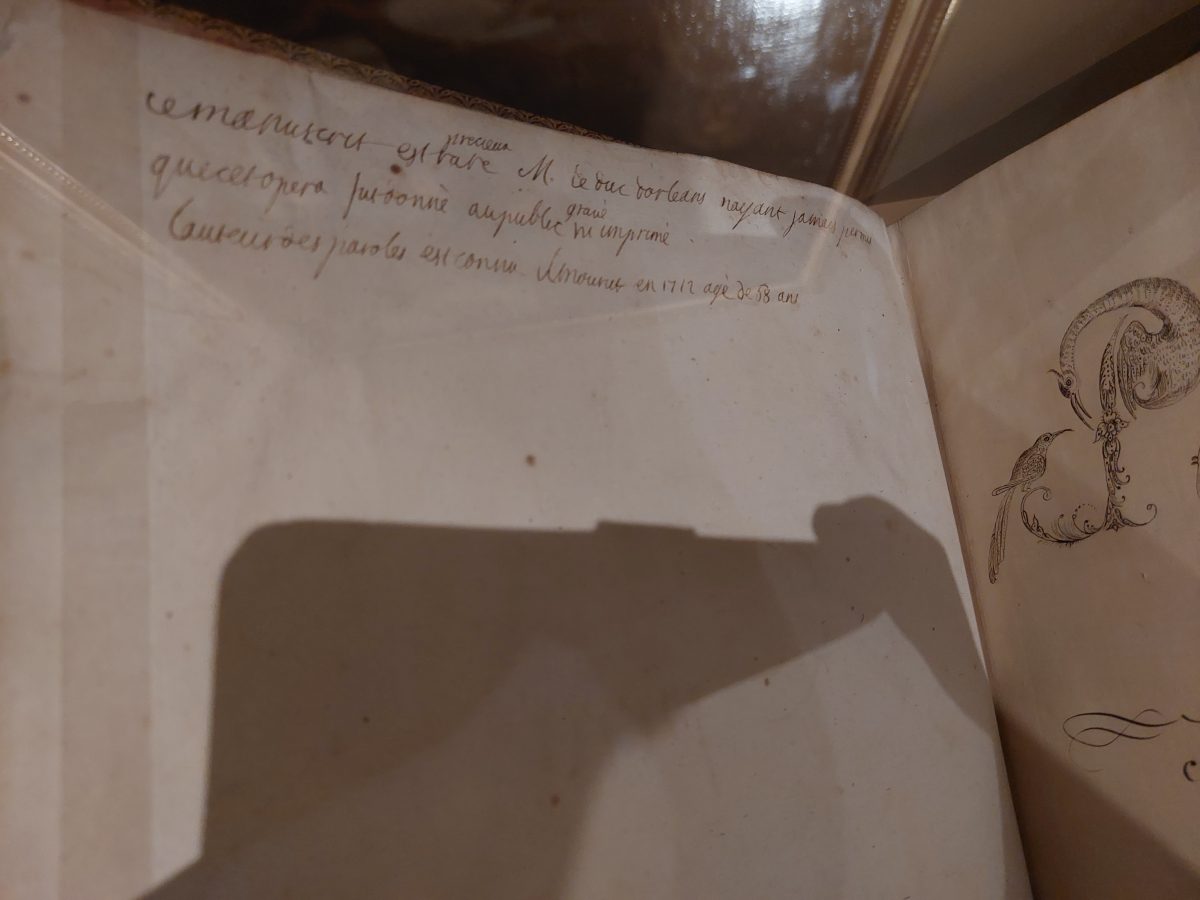 ce manuscrit est rare precieux M. le duc dorleans nayant jamais permis
que cet opera fut donné au public gravé ni imprimé.
Lauteur des paroles est connu il mourut en 1712 agé de 68 ans